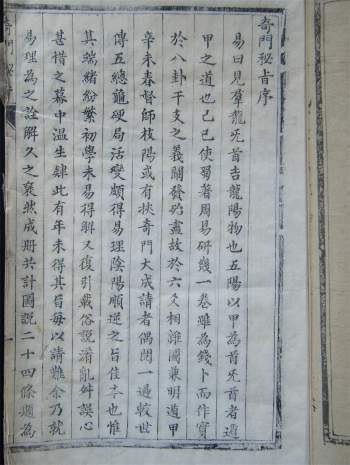 奇門秘旨序
易曰見羣龍旡首吉龍陽物也五陽以甲為首旡首者遁
甲之道也己巳使蜀著周易研幾一卷雖為錢卜而作實
於八卦干支之義闡發殆盡故於六爻相雜圖兼明遁甲
辛未春督師枝陽或有挾奇門大成請者偶閱一過較世
傳五總龜硬局活變頗得易理陰陽順逆之旨佳本也惟
其端緒紛繁初學未易得解又復引載俗說淆亂舛誤心
甚惜之幕中溫生肄此有年未得其旨每以請難余乃就
易理為之詮解久之裒然成冊共計圖說二十四條題為
奇門秘